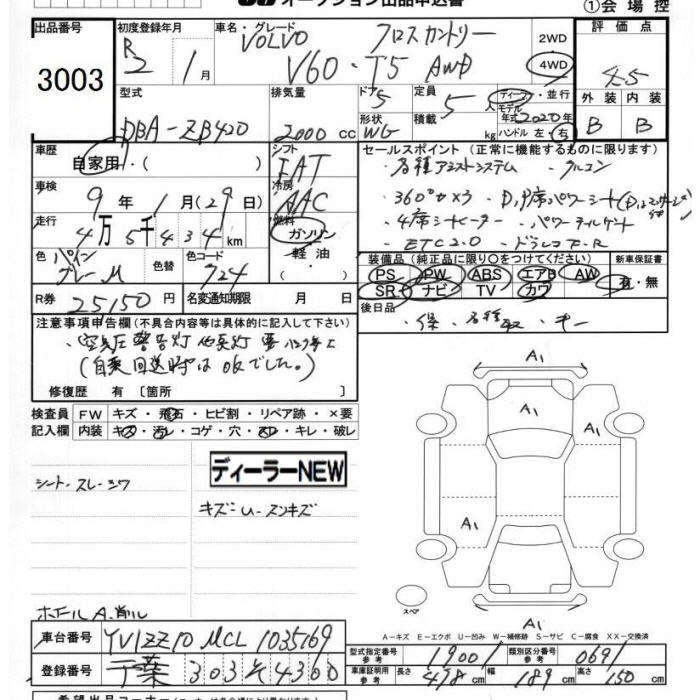 オークション出品申込書
①会場控
出品番号
3003
初度登録年月
R2 1月
車名・グレード
VOLVO クロスカントリー
V60・T5 AWD
2WD
4WD
評価点
4.5
外装 内装
B B
型式
DBA-ZB420
排気量
2000 cc
ドア 5
形状 WG
定員 5人
積載 kg
ディーラー・並行
モデル年式 2020年
ハンドル 左・右
車歴
自家用・( )
シフト
FAT
車検
9年 1月(29日)
冷房
AAC
走行
4万5千434km
燃料
ガソリン
軽油
・( )
色 パイン
グレーM
色替
色コード
724
R券 25150円
名変通知期限 月 日
セールスポイント(正常に機能するものに限ります)
・各種アシストシステム ・クルコン
・360°カメラ ・D,P席パワーシート
・4席シートヒーター ・パワーテールゲート
・ETC2.0 ・ドラレコF・R
装備品(純正品に限り〇をつけてください)
PS PW ABS エアB AW
SR ナビ TV カワ
新車保証書
有・無
後日品
・保・各種取・キー
注意事項申告欄(不具合内容等は具体的に記入して下さい)
・空気圧警告灯
(自乗回送時はOKでした。)
修復歴 有〔箇所 〕
検査員 FW キズ・飛石・ヒビ割・リペア跡・×要
記入欄 内装 キズ・汚れ・コゲ・穴・スレ・キレ・破レ
シート・スレ・シワ
ディーラーNEW
キズ・U・スリキズ
ホイールA・削ル
A1
A1
A1
A1
A1
スペア
A-キズ E-エクボ U-凹み W-補修跡 S-サビ C-腐食 XX-交換済
車台番号 YV1ZZ10MCL1035169
登録番号 千葉 303 そ 4300
型式指定番号 参考 19001
類別区分番号 参考 0691
車庫証明用 参考 長さ 478cm 幅 189cm 高さ 150cm